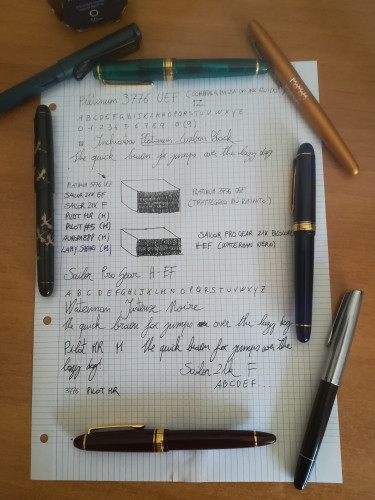 Platinum 3776 UEF
A B C D E F G H I J K L M N O P Q R S T U V W X Y Z
0 1 2 3 4 5 6 7 8 9
Inchiostro Platinum Carbon Black
The quick brown fox jumps over the lazy dog
PLATINUM 3776 UEF
SAILOR 21K EF
SAILOR 21K F
PILOT MR (M)
PILOT #5 (M)
AURORA 88P (M)
LAMY SAFARI (M)
PLATINUM 3776 UEF
SAILOR PRO GEAR 21K
H-EF (WATERMAN NERO)
Sailor Pro Gear H-EF
A B C D E F G H I J K L M N O P Q R S T U V W X Y Z
Waterman Intense Noire
The quick brown fox jumps over the lazy dog
Pilot MR M The quick brown fox jumps over the
lazy dog!
Sailor 21K F
ABCDEF
3776 PILOT MR